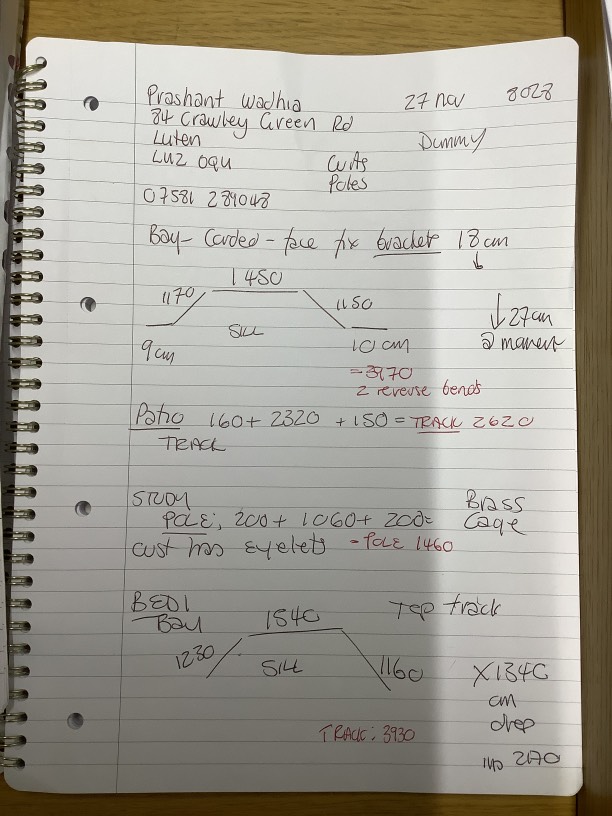 Prashant Wadhia 27 nov 8028
84 Crawley Green Rd
Luten Dummy
LU2 0QU
Poles
07581 289048
Bay - Corded - face fix brackets 18cm
1450
1170 1150
SILL
27cm
@ moment
9cm 10cm
= 3970
2 reverse bends
Patio 160 + 2320 + 150 = TRACK 2620
TRACK
STUDY Brass
POLE: 200 + 1060 + 200 = Cage
cust has eyelets - Pole 1460
BED1 Top track
Bay 1540
1230 SILL 1160
X 134C
cm
drop
TRACK: 3930